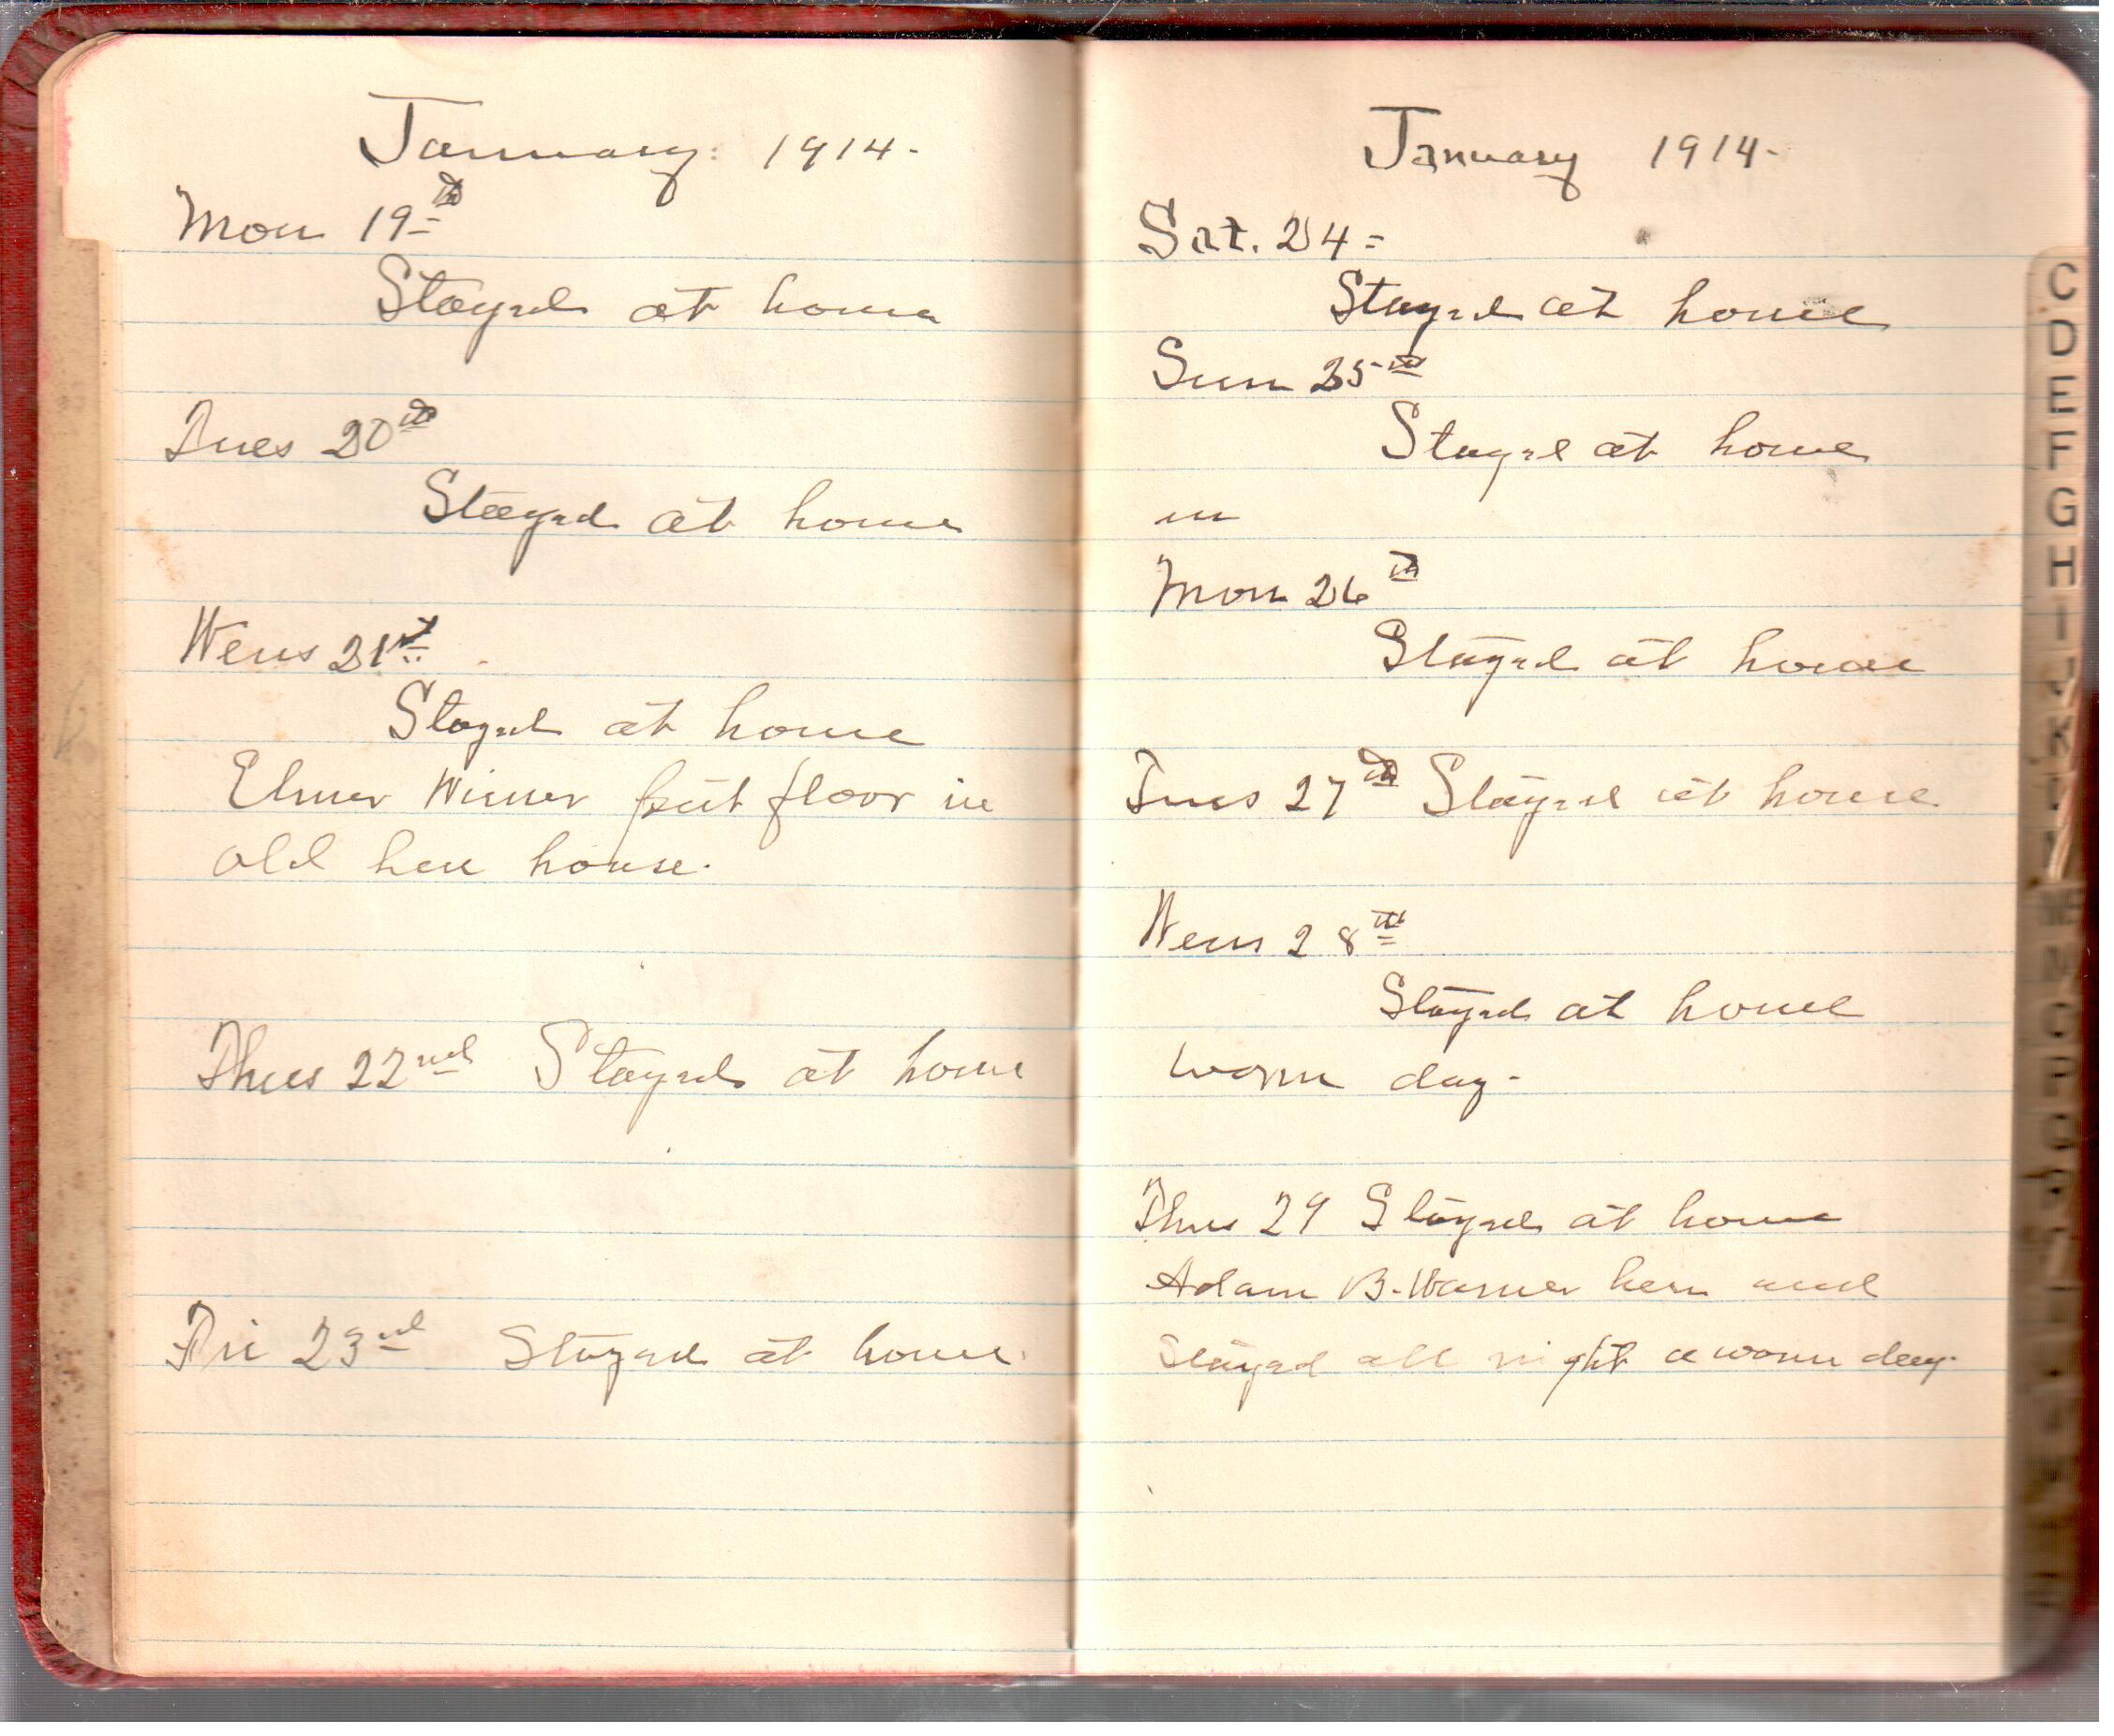 January 1914-
Mon 19th
Stayed at home
Tues 20th
Stayed at home
Wens 21st
Stayed at home
Elmer Wisner put floor in
old hen house.
Thus 22nd Stayed at home
Fri 23rd Stayed at home
January 1914-
Sat. 24=
Stayed at home
Sun 25th
Stayed at home
Mon 26th
Stayed at home
Tues 27th Stayed at home
Wens 28th
Stayed at home
warm day-
Thus 29 Stayed at home
Adam B. Warner here and
Stayed all night a warm day-
C
D
E
F
G
H
I
J
K